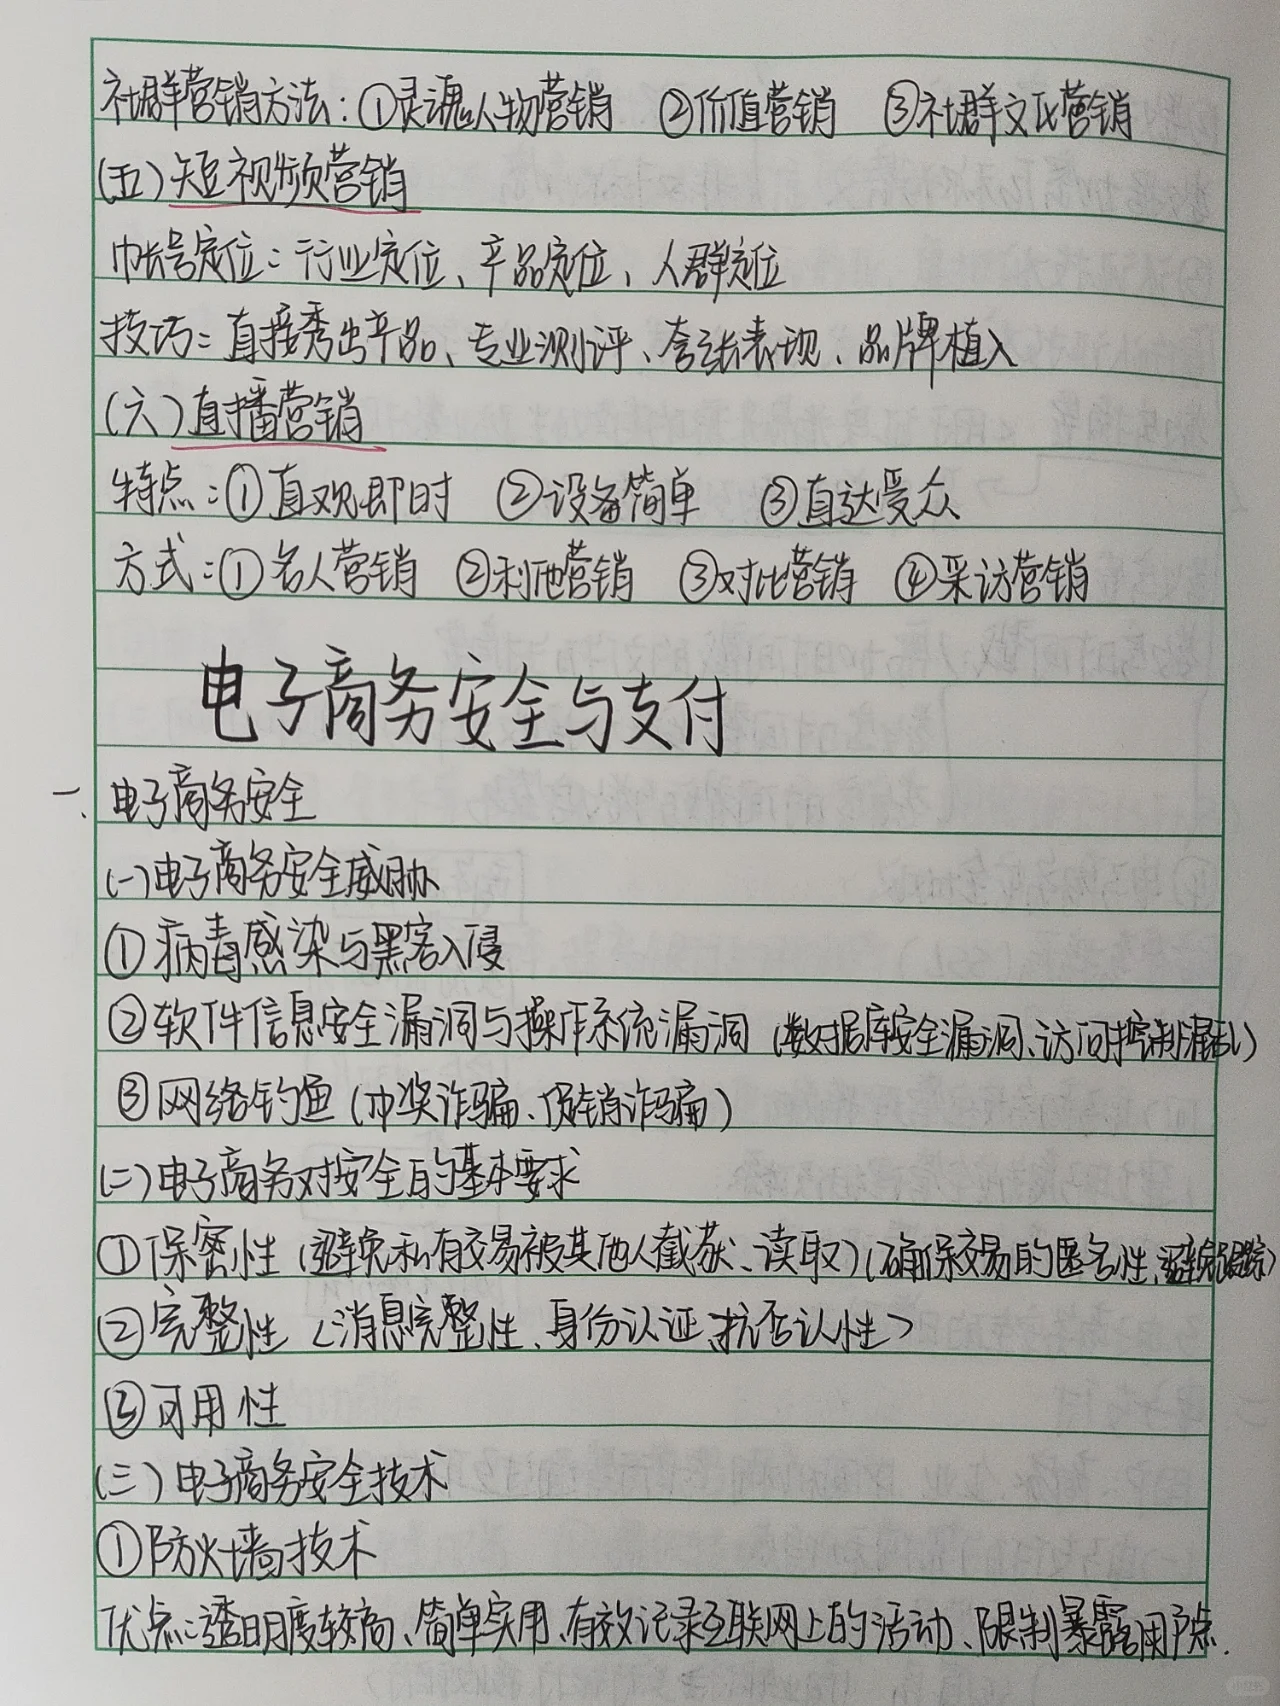 社群营销方法：①灵魂人物营销 ②价值营销 ③社群文化营销
(五)短视频营销
帐号定位：行业定位、产品定位、人群定位
技巧：直接秀出产品、专业测评、夸张表现、品牌植入
(六)直播营销
特点：①直观即时 ②设备简单 ③直达受众
方式：①名人营销 ②利他营销 ③对比营销 ④采访营销
电子商务安全与支付
一、电子商务安全
(一)电子商务安全威胁
①病毒感染与黑客入侵
②软件信息安全漏洞与操作系统漏洞(数据库安全漏洞、访问控制混乱)
③网络钓鱼(中奖诈骗、促销诈骗)
(二)电子商务对安全的基本要求
①保密性(避免私有交易被其他人截获、读取)(确保交易的匿名性、避免跟踪)
②完整性<消息完整性、身份认证、抗否认性>
③可用性
(三)电子商务安全技术
①防火墙技术
优点：透明度较高、简单实用、有效记录互联网上的活动、限制暴露用户点.